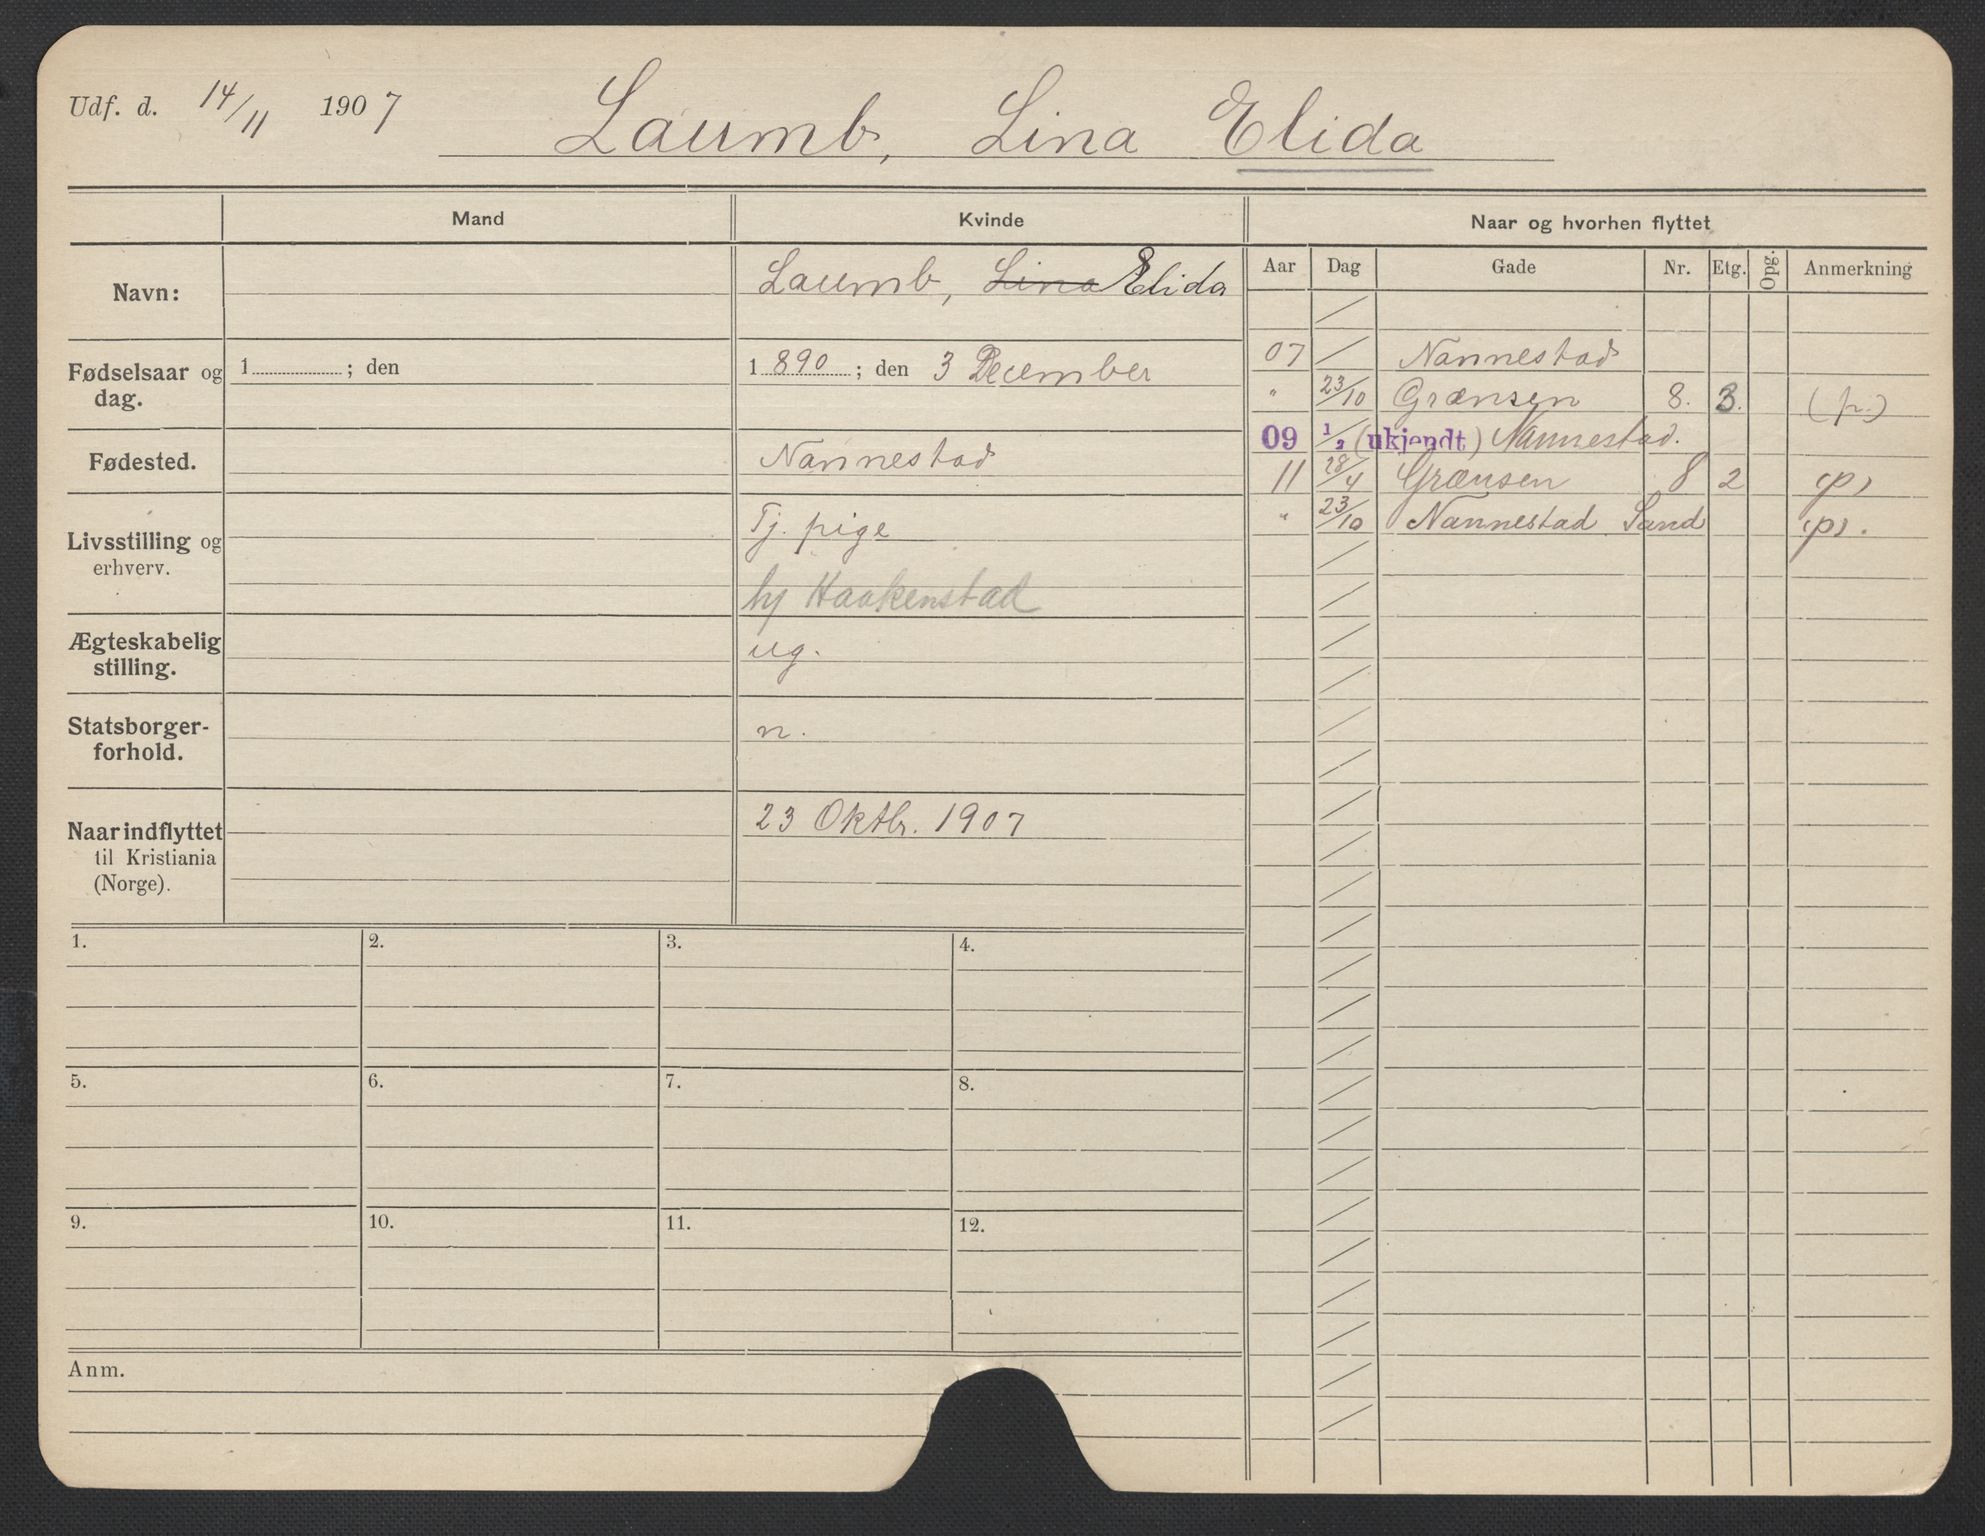 Udf. d. 14/11 1907 Laumb, Lina Elida
Mand Kvinde Naar og hvorhen flyttet
Navn: Laumb, Lina Elida
Fødselsaar og dag. 1 ; den 1890 ; den 3 December
Fødested. Nannestad
Livsstilling og Tj. pige
erhverv. hj Haakenstad
Ægteskabelig stilling. ug.
Statsborger-forhold. n.
Naar indflyttet 23 Oktbr. 1907
til Kristiania
(Norge).
1. 2. 3. 4.
5. 6. 7. 8.
9. 10. 11. 12.
Anm.
Aar Dag Gade Nr. Etg. Opg. Anmerkning
07 / Nannestad
" 23/10 Grænsen 8. 3. (p.)
09 1/2 (ukjendt) Nannestad.
11 28/4 Grænsen 8 2 (p)
" 23/10 Nannestad Sand (p).